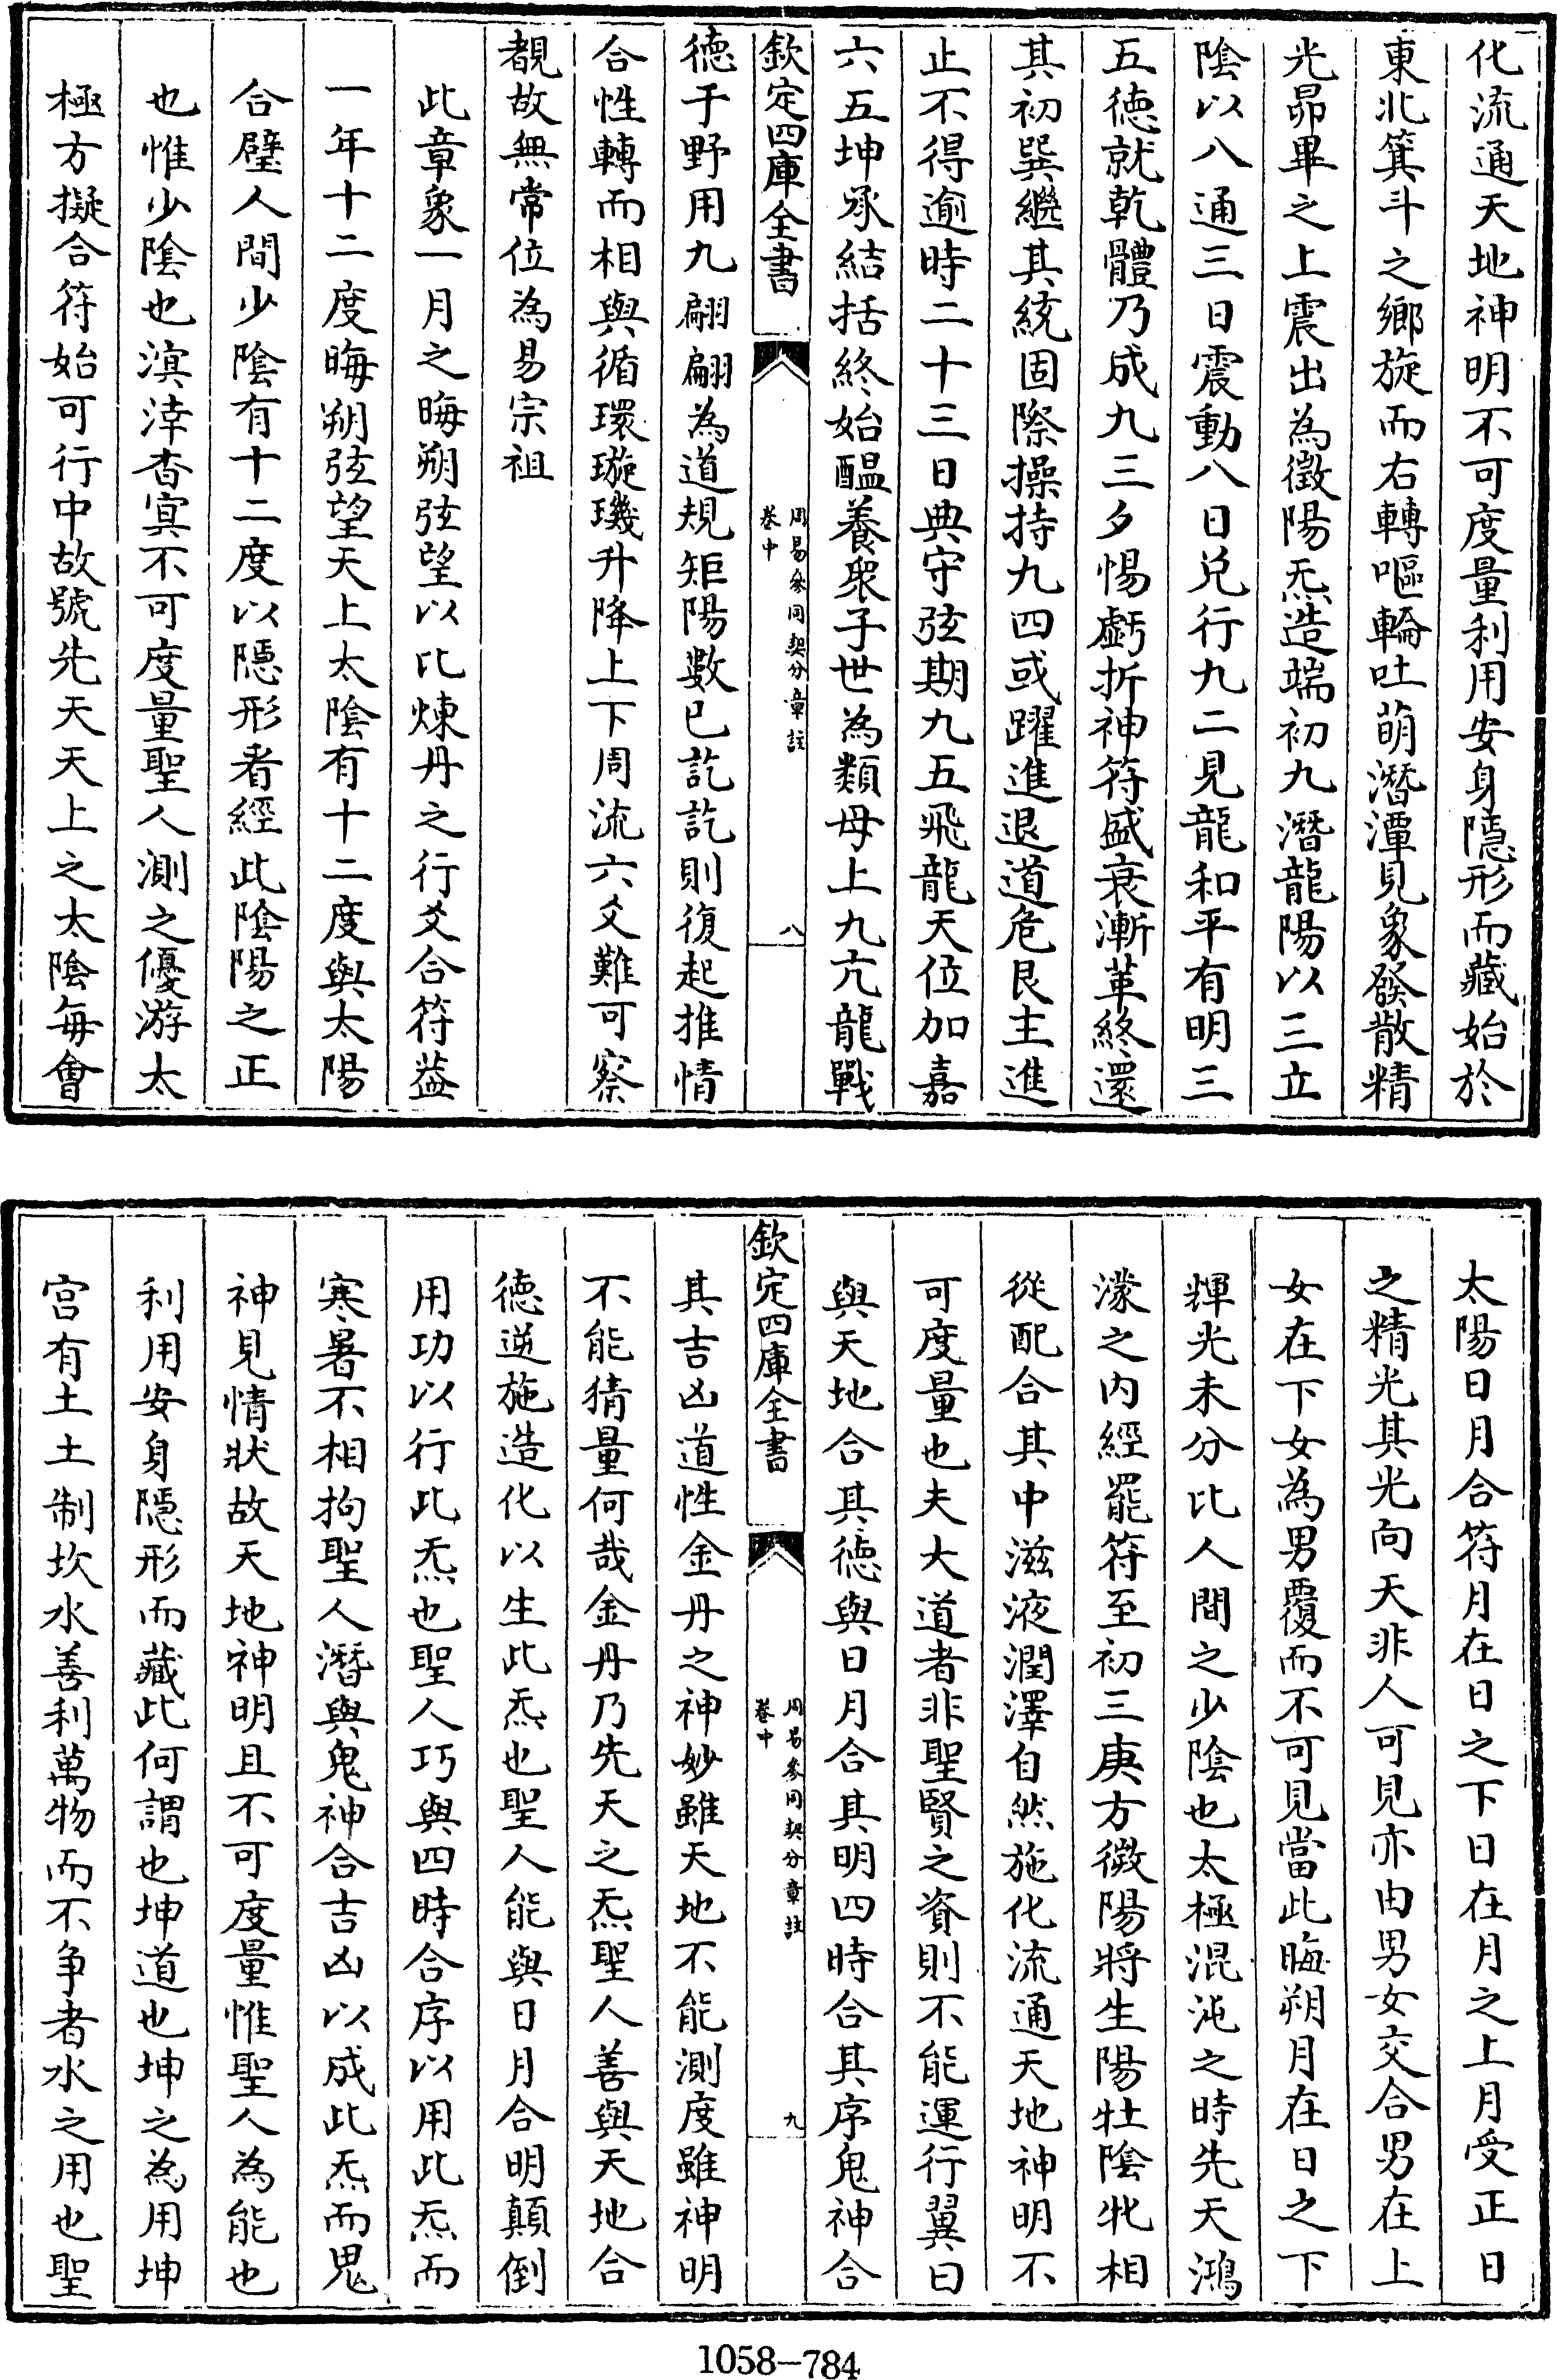 化流通天地神明不可度量利用安身隱形而藏始於
東北箕斗之鄉旋而右轉嘔輪吐萌潛潭見象發散精
光昴畢之上震出為徵陽炁造端初九潛龍陽以三立
陰以八通三日震動八日兑行九二見龍和平有明三
五德就乾體乃成九三夕惕虧折神符盛衰漸革終還
其初巽繼其統固際操持九四或躍進退道危艮主進
止不得逾時二十三日典守弦期九五飛龍天位加嘉
六五坤承結括終始醖養衆子世為類母上九亢龍戰
欽定四庫全書
周易參同契分章註
卷中
八
德于野用九翩翩為道規矩陽數已訖訖則復起推情
合性轉而相與循環璇璣升降上下周流六爻難可察
覩故無常位為易宗祖
此章象一月之晦朔弦望以比煉丹之行爻合符葢
一年十二度晦朔弦望天上太陰有十二度與太陽
合璧人間少陰有十二度以隱形者經此陰陽之正
也惟少陰也溟涬杳㝠不可度量聖人測之優游太
極方擬合符始可行中故號先天天上之太陰每會
太陽日月合符月在日之下日在月之上月受正日
之精光其光向天非人可見亦由男女交合男在上
女在下女為男覆而不可見當此晦朔月在日之下
輝光未分比人間之少陰也太極混沌之時先天鴻
濛之内經罷符至初三庚方微陽將生陽牡陰牝相
從配合其中滋液潤澤自然施化流通天地神明不
可度量也夫大道者非聖賢之資則不能運行翼曰
與天地合其德與日月合其明四時合其序鬼神合
欽定四庫全書
周易參同契分章註
卷中
九
其吉凶道性金丹之神妙雖天地不能測度雖神明
不能猜量何哉金丹乃先天之炁聖人善與天地合
德逆施造化以生此炁也聖人能與日月合明顛倒
用功以行此炁也聖人巧與四時合序以用此炁而
寒暑不相拘聖人潛與鬼神合吉凶以成此炁而鬼
神見情狀故天地神明且不可度量惟聖人為能也
利用安身隱形而藏此何謂也坤道也坤之為用坤
宮有土土制坎水善利萬物而不争者水之用也聖
1058-784